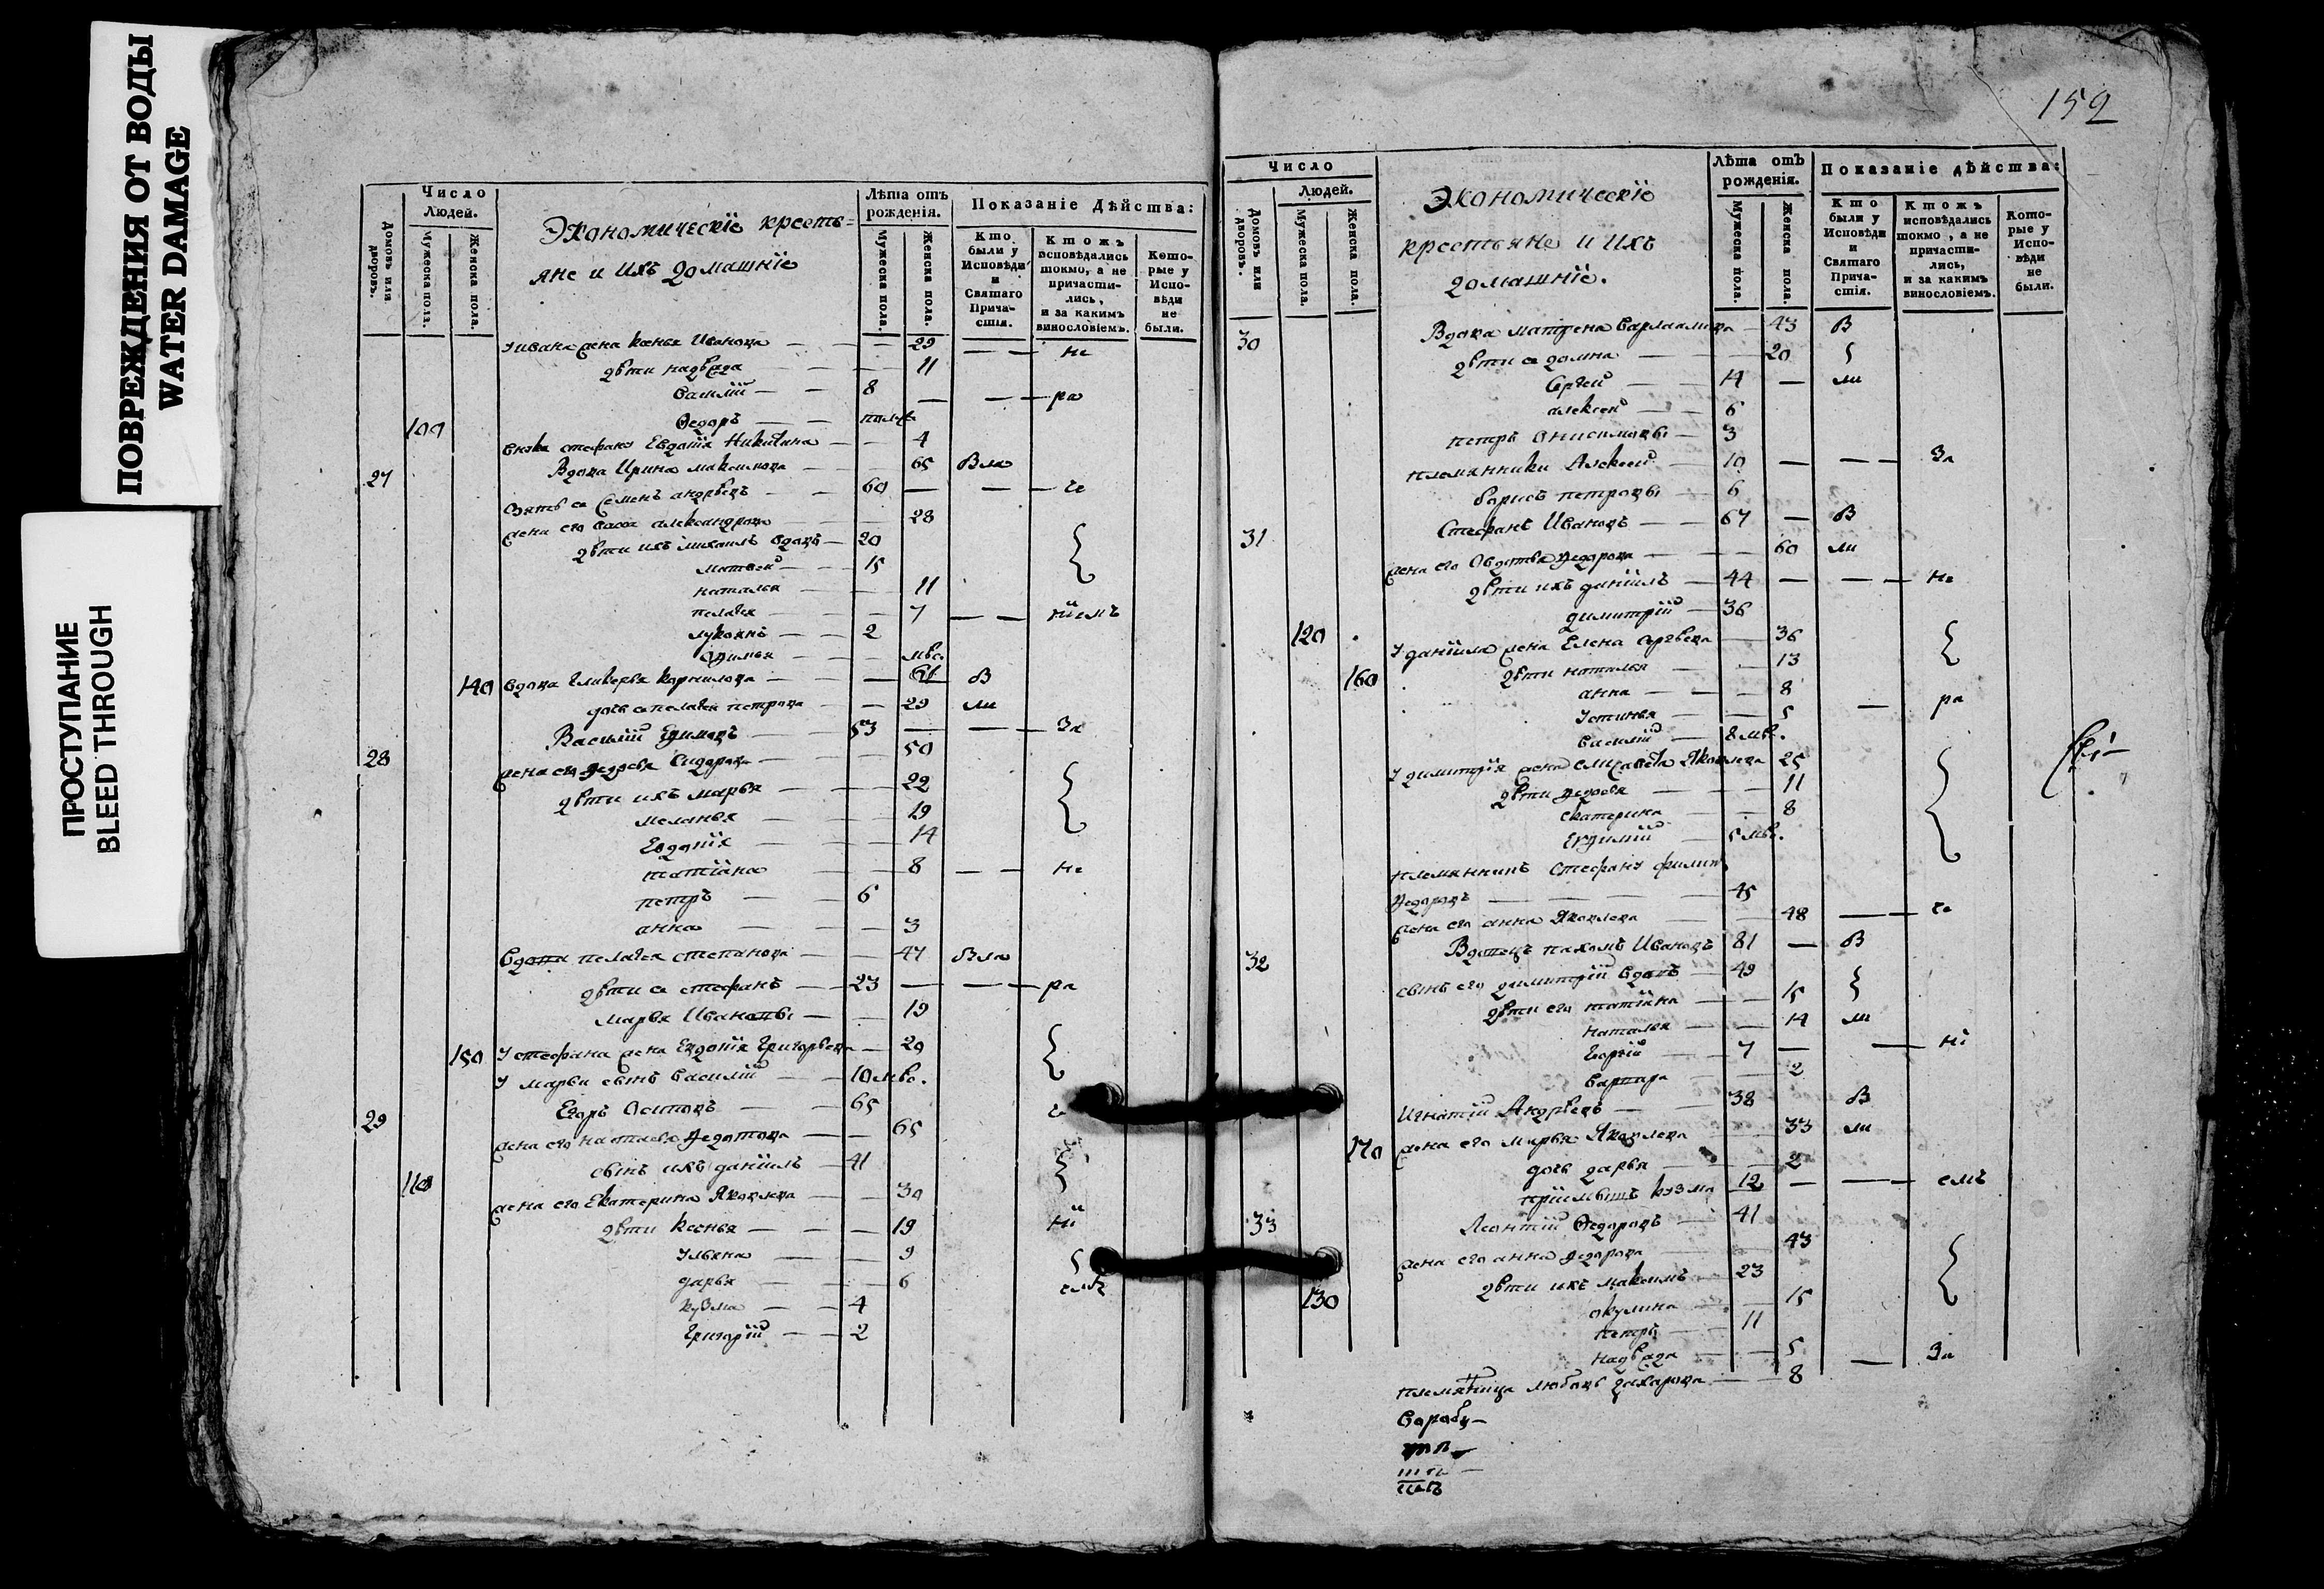 ПОВРЕЖДЕНИЯ ОТ ВОДЫ
WATER DAMAGE
ПРОСТУПАНИЕ
BLEED THROUGH
Число
Людей.
Домовъ или дворовъ.
Мужеска пола.
Женска пола.
Экономическїе кресть=
яне и ихъ домашнїе
Лѣта отъ рожденія.
Мужеска пола.
Женска пола.
Показаніе Дѣйства:
Кто были у Исповѣди и Святаго Прича-стія.
Ктожъ исповѣдались токмо, а не причасти-лись, и за какимъ винословіемъ.
Кото-рые у Испо-вѣди не были.
Уивана жена Ксенья Иванова — 29 — — не
дѣти надежда — 11
Василïй — 8 — — ра
100 Ѳедоръ —
Стефану Евдокïя Никитина — 4
27 Вдова Ирина максимова — 65 Вла
Зять ея Семенъ андрѣевъ — 60 — — че
жена его александрова — 28
дѣти ихъ михаилъ вдовъ — 20
матвей — 15
наталья — 11
пелагея — 7 — — нïемъ
лукоянъ — 2
140 вдова Гликерья корнилова — 61 В
дочь ея пелагея петрова — 29 ли
28 Василïй Ефимовъ — 53 — — За
жена его Федосья Сидорова — 50
дѣти ихъ марья — 22
меланья — 19
Евдокïя — 14
татïана — 8 — — не
петръ — 6
анна — 3
Вдова пелагея степанова — 47 Вла
дѣти ея стефанъ — 23 — — ра
марья Ивановы — 19
150 У стефана жена Евдокïя Григорьева — 20
У марьи сынъ Василïй — 10 мѣс.
29 Егоръ Осиповъ — 65 че
жена его наталья Федотова — 65
сынъ ихъ данïилъ — 41
110 жена его Екатерина Яковлева — 30
дѣти ксенья — 19 нï
Ульяна — 9
дарья — 6 емъ
кузма — 4
Григорïй — 2
152
Число
Людей.
Домовъ или дворовъ.
Мужеска пола.
Женска пола.
Экономическïе
крестьяне и ихъ
домашнïе.
Лѣта отъ рожденія.
Мужеска пола.
Женска пола.
Показаніе дѣйства:
Кто были у Исповѣди и Святаго Прича-стія.
Ктожъ исповѣдались токмо, а не причасти-лись, и за какимъ винословіемъ.
Кото-рые у Испо-вѣди не были.
30 Вдова матрена Варлаамова — 43 В
дѣти ея домна — 20
Сергей — 14 — ли
алексей — 6
петръ Онисимовы — 3
племянники Алексей — 10 — — За
борисъ петровы — 6
31 Стефанъ Ивановъ — 67 — В
жена его Авдотья Федорова — 60 ли
дѣти ихъ данïилъ — 44 — — не
димитрïй — 36
120 У данïила жена Елена Сергѣева — 36
160 дѣти наталья — 13
анна — 8
Устинья — 5 — ра
василïй — 8 мѣс.
У димитрïя жена елисавета Яковлева 25
дѣти федосья — 11
екатерина — 8
Евфимïй — 5 мѣс.
племянникъ Стефану филип
Федоровъ — 45
жена его анна Яковлева — 48 — — че
32 Вдовецъ пахомъ Ивановъ 81 — В
сынъ его димитрïй вдовъ — 49
дѣти его татïана — 15
наталья — 14 ли
Георгïй — 7 — — нï
варвара — 2
Игнатïй Андрѣевъ — 38 В
170 жена его марья Яковлева — 33 ли
дочь дарья — 2
прïемышъ кузма 12 — — емъ
33 Леонтïй Ѳедоровъ — 41
жена его анна Федорова — 43
дѣти ихъ максимъ — 23
130 окулина — 15
петръ — 11
надежда — 5 — За
племянница любовь захарова — 8